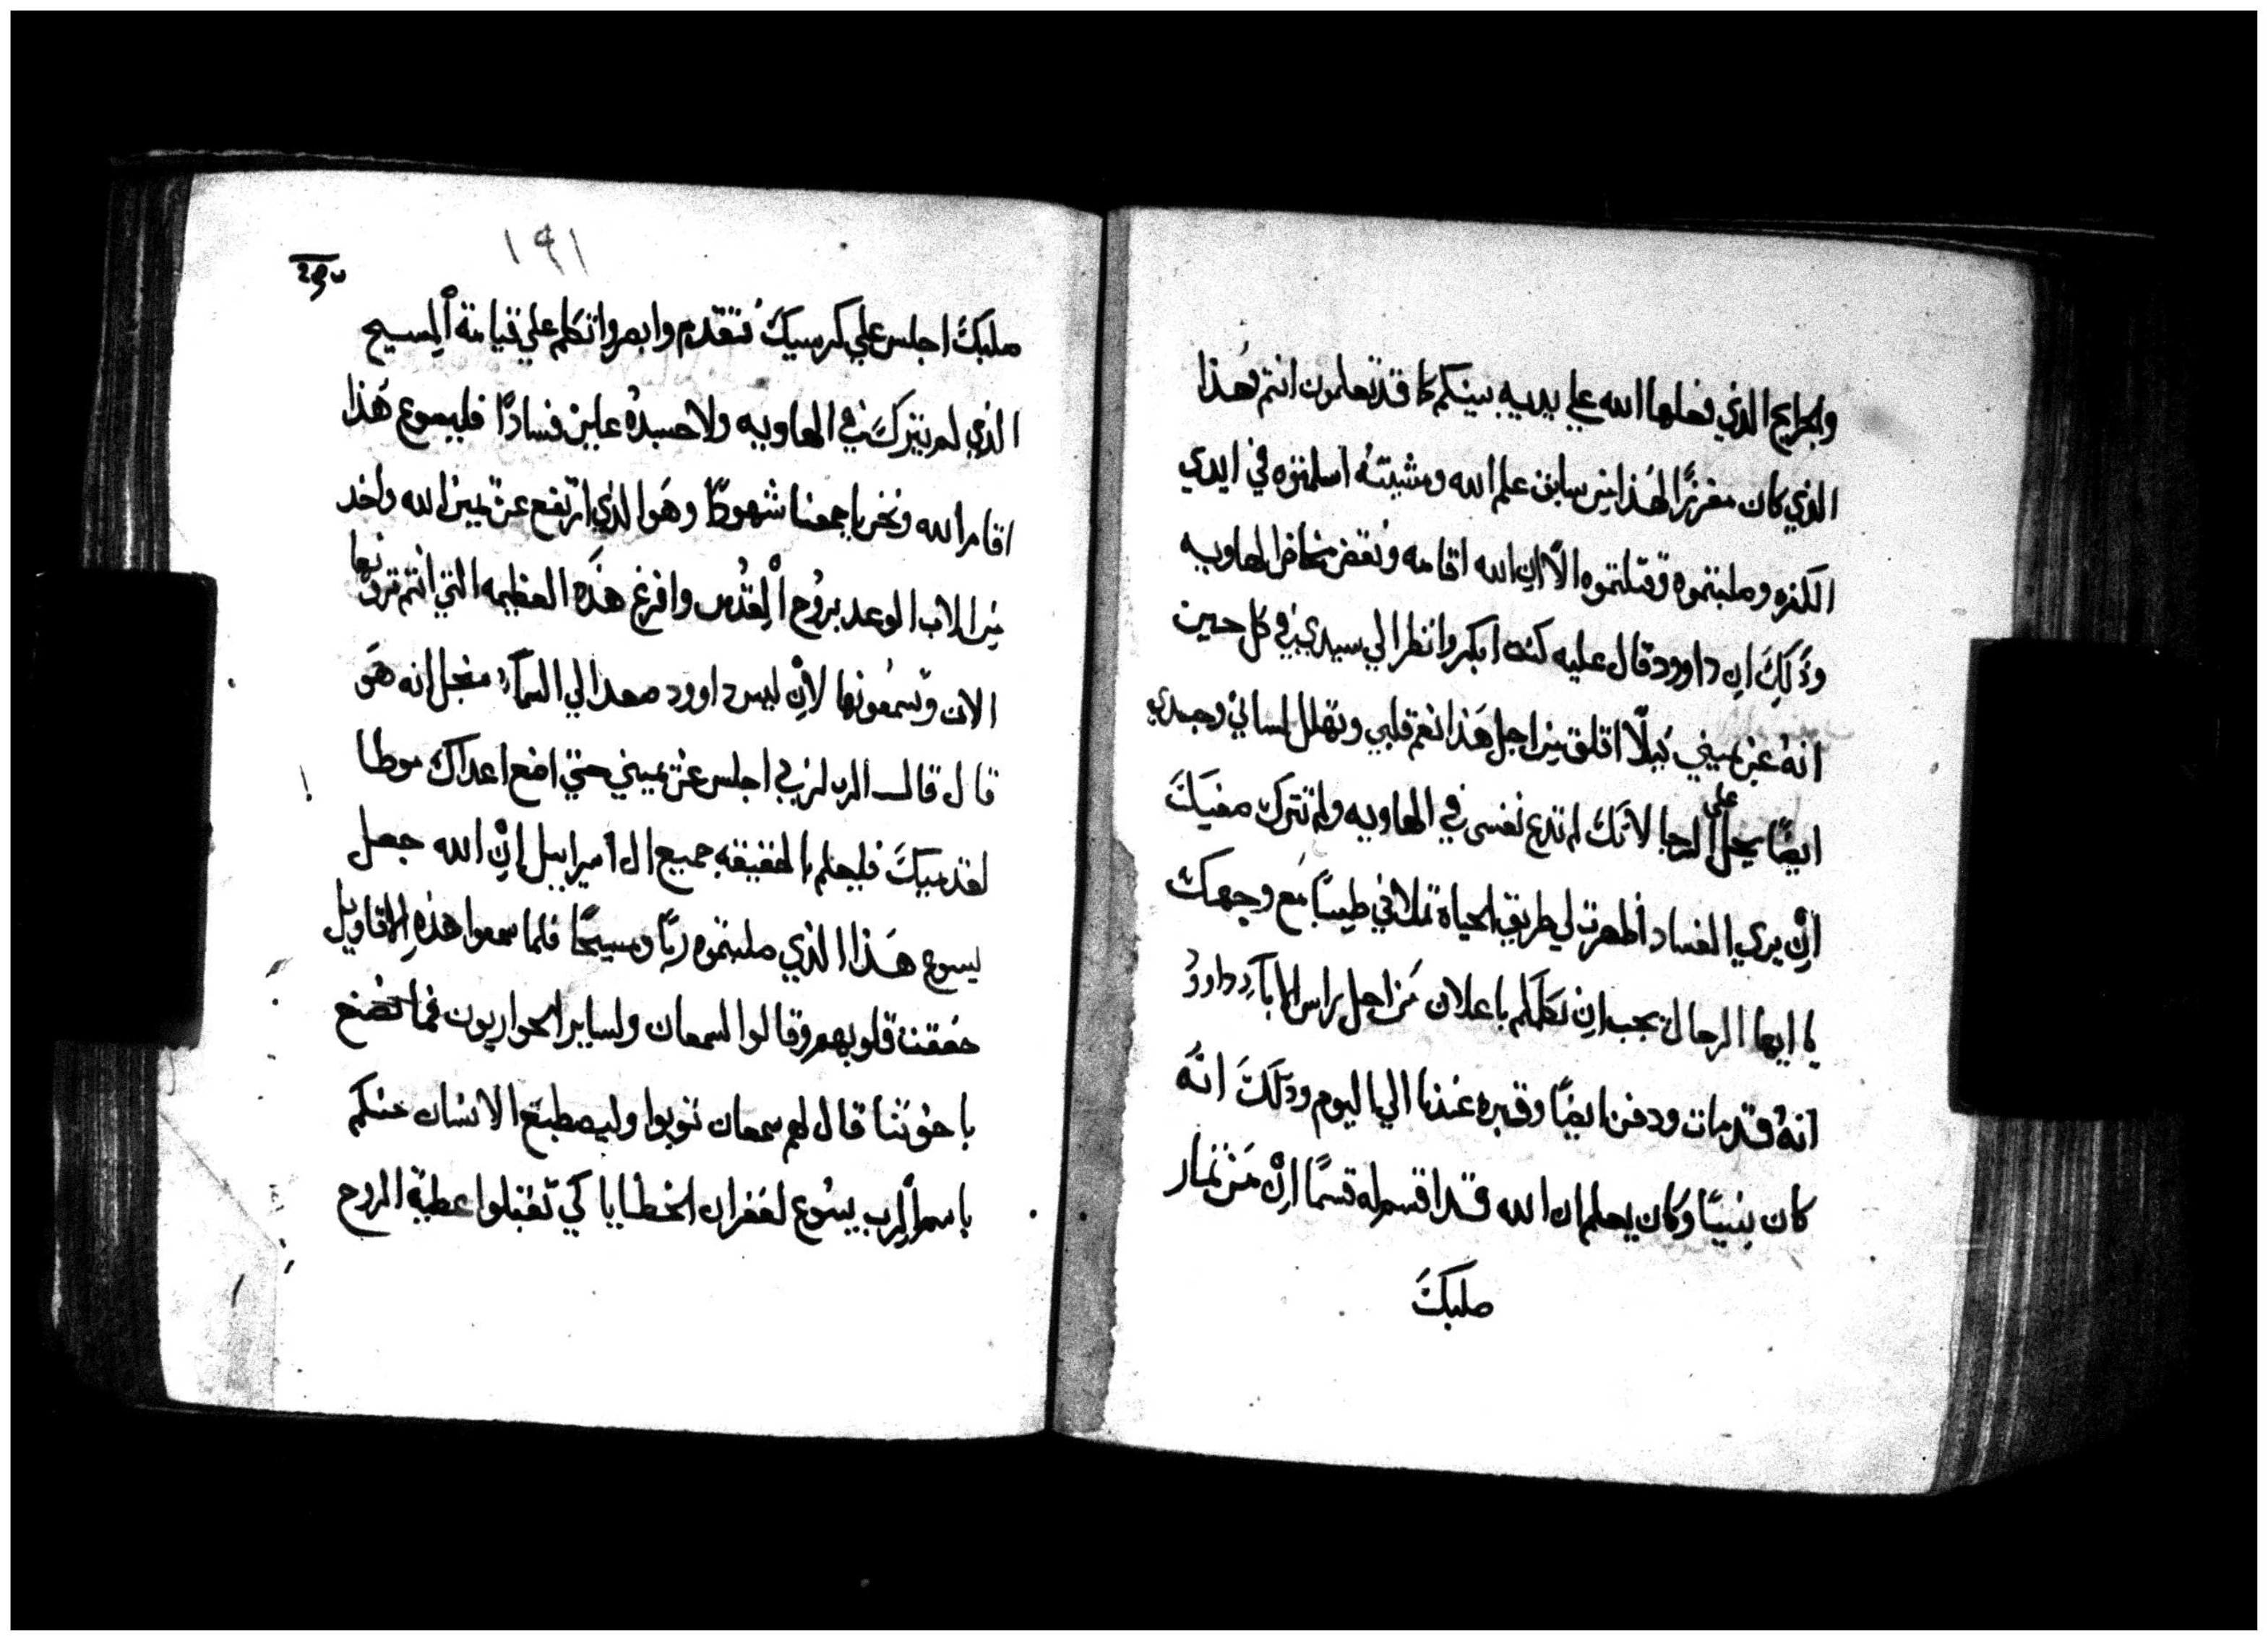 والجرايح الذي فعلها الله علي يديه بينكم كما قد تعلمون انتم فهذا
الذي كان مفرزًا لهذا من سابق علم الله ومشيته اسلمتوه في ايدي
الكفره وصلبتموه وقتلتموه الا ان الله اقامه ونقض مخاض الهاويه
وذلك ان داوود قال عليه كنت ابكر وانظر الي سيدي في كل حين
انه عن يميني ليلا اقلق من اجل هذا نعم قلبي وتهلل لساني وجسدي
ايضًا يحل علي الرجا لانك لم تدع نفسي في الهاويه ولم تترك صفيك
ان يري الفساد اظهرت لي طريق الحياة تملاني طيبًا مع وجهك
يا ايها الرجال يجب ان نكلمكم باعلان من اجل راس الابآ داوود
انه قد مات ودفن ايضًا وقبره عندنا الي اليوم وذلك انه
كان نبيًا وكان يعلم ان الله قد اقسم له قسمًا ان من ثمار
صلبك
١٩١
صلبك اجلس علي كرسيك فتقدم وابصر واتكلم علي قيامة المسيح
الذي لم يترك في الهاويه ولا جسده عاين فسادًا فليسوع هذا
اقام الله ونحن باجمعنا شهودًا وهو الذي ارتفع عن يمين الله واخد
من الاب الوعد بروح القدس وافرغ هذه العظيمه التي انتم ترونها
الان وتسمعونها لان ليس داوود صعد الي السمآ منجل انه هو
قال قال الرب لربي اجلس عن يميني حتي اضع اعداك موطا
لقدميك فليعلم بالحقيقه جميع ال اسراييل ان الله جعل
يسوع هذا الذي صلبتموه ربًا ومسيحًا فلما سمعوا هذه الاقاويل
خفقت قلوبهم وقالوا لسمعان ولساير الحواريون فما نصنع
ياخوتنا قال لهم سمعان توبوا وليصطبغ الانسان منكم
باسم الرب يسوع لغفران الخطايا كي تقبلوا عطية الروح